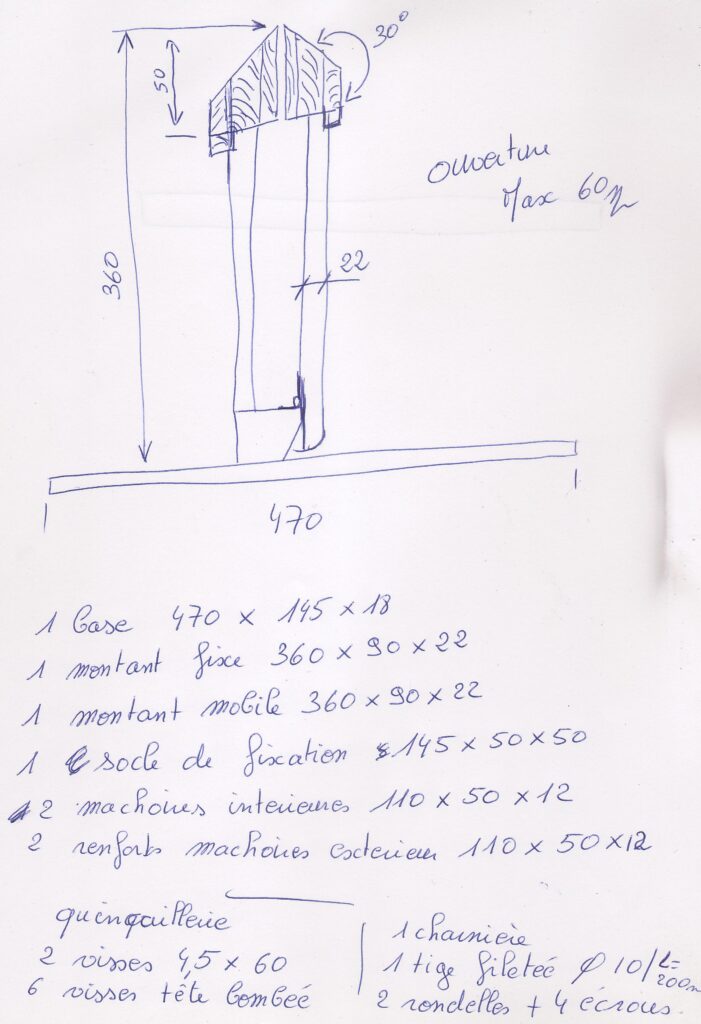 30°
50
Ouverture
Max 60
360
22
470
1 base 470 x 145 x 18
1 montant fixe 360 x 90 x 22
1 montant mobile 360 x 90 x 22
1 socle de fixation 145 x 50 x 50
2 machoires interieures 110 x 50 x 12
2 renforts machoires exterieur 110 x 50 x 12
quinquaillerie
2 visses 4,5 x 60
6 visses tête bombéé
1 charnière
1 tige filetéé Ø 10/L=200m
2 rondelles + 4 écrous.